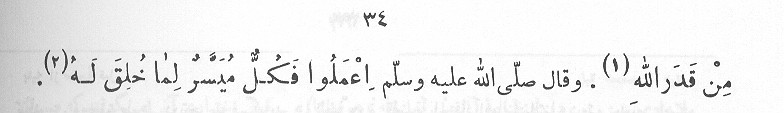 ٣٤
مِنْ قَدَرِ اللهِ (١) . وقال صلّى الله عليه وسلّم اِعْمَلُوا فَكُلٌّ مُيَسَّرٌ لِمَا خُلِقَ لَـهُ (٢) .